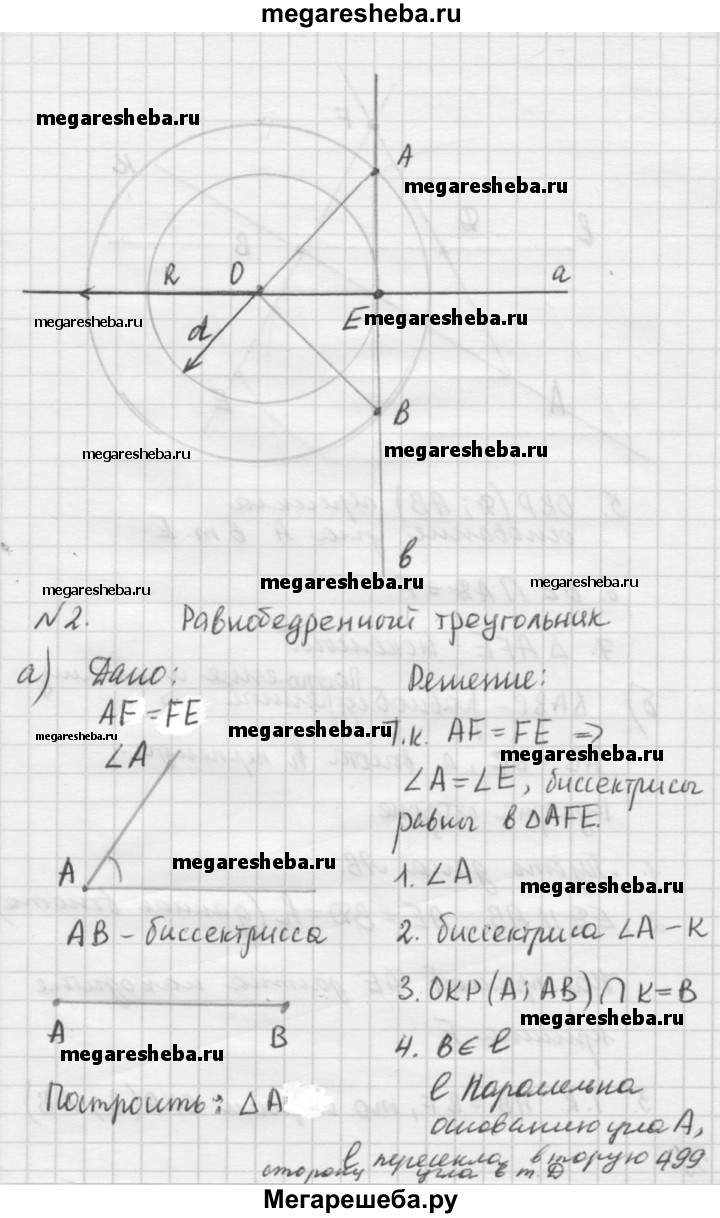 megaresheba.ru
megaresheba.ru
F
A
K
megaresheba.ru
R O a
E megaresheba.ru
megaresheba.ru
d
B
megaresheba.ru
megaresheba.ru
в
megaresheba.ru
megaresheba.ru
megaresheba.ru
№2. Равнобедренный треугольник
а) Дано:
AF = FE
megaresheba.ru
∠A
A
megaresheba.ru
AB - биссектрисса
A B
megaresheba.ru
Построить: △A
Решение:
Т.к. AF = FE ⇒
megaresheba.ru
∠A = ∠E, биссектрисы
равны в △AFE.
1. ∠A
megaresheba.ru
2. биссектриса ∠A - K
3. ОКР(A; AB) ∩ K = B
megaresheba.ru
4. B ∈ l
l параллельна
основанию угла A,
l пересекла вторую
сторону угла в т. D
499
Мегарешеба.ру